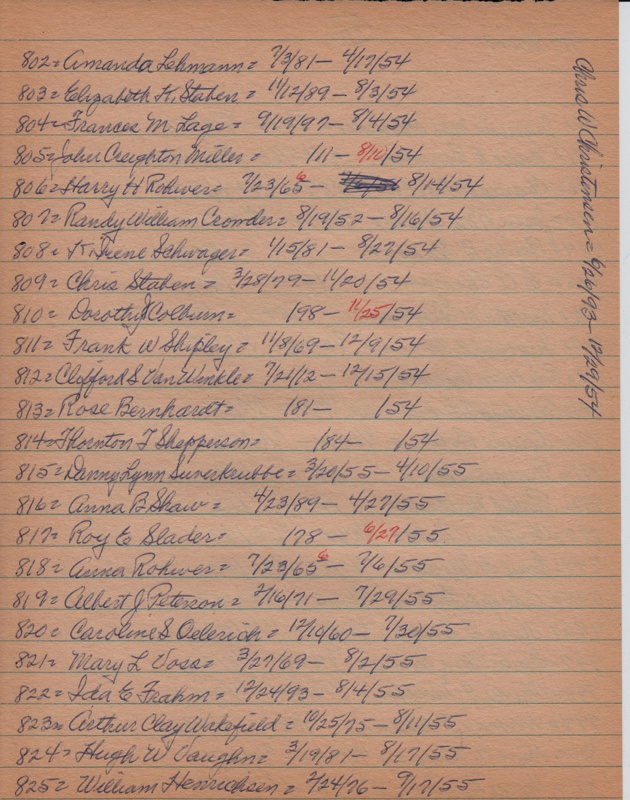 802= Amanda Lehmann= 7/3/81- 4/17/54
803= Elizabeth K. Staben = 11/12/89 - 8/3/54
804= Frances M Lage = 9/19/97- 8/4/54
805= John Creighton Miller= /11 - 8/10/54
806= Harry H Rohwer= 7/23/65 6 - 8/14/54
807= Randy William Crowder= 8/19/52 - 8/16/54
808= K. Irene Schwager= 1/15/81 - 8/27/54
809= Chris Staben = 3/28/79 - 11/20/54
810= Dorothy J Colburn= /98- 11/25/54
811= Frank W Shipley= 11/8/69- 12/9/54
812= Clifford S Van Winkle= 7/21/12 - 12/15/54
813= Rose Bernhardt= /81- /54
814= Thornton T Shepperson= /84- /54
815= Danny Lynn Suverkrubbe = 3/20/55 - 4/10/55
816= Anna B Shaw = 4/23/89- 4/27/55
817= Roy E Slader= /78 - 6/27/55
818= Anna Rohwer= 7/23/65 6 - 7/6/55
819= Albert J Peterson= 2/16/71 - 7/29/55
820= Caroline S Oelerich= 12/10/60- 7/30/55
821= Mary L Voss= 3/27/69- 8/2/55
822= Ida E Frahm= 12/24/93- 8/4/55
823= Arthur Clay Wakefield = 10/25/75- 8/11/55
824= Hugh W Vaughn= 3/19/81- 8/17/55
825= William Henrichsen= 2/24/76 - 9/17/55
Chris W Christensen= 6/26/93- 12/29/54